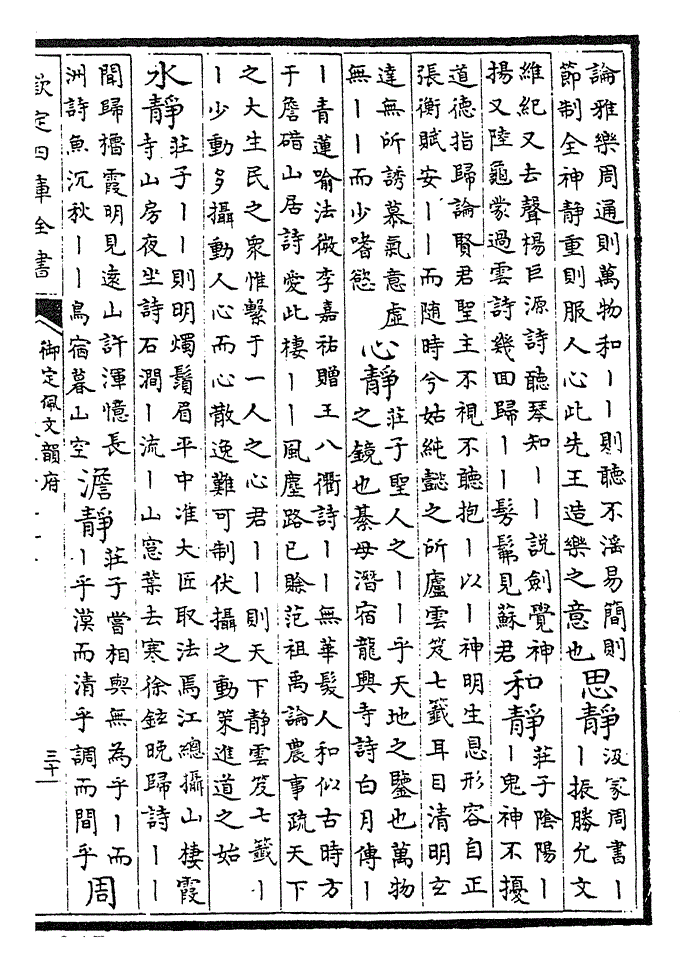 論雅樂周通則萬物和丨丨則聽不滛易簡則
節制全神静重則服人心此先王造樂之意也
思靜
汲冢周書丨
丨振勝允文
維紀又去聲楊巨源詩聽琴知丨丨説劍覺神
揚又陸龜蒙過雲詩幾回歸丨丨髣髴見蘇君
和靜
莊子陰陽丨
丨鬼神不擾
道德指歸論賢君聖主不視不聽抱丨以丨神明生息形容自正
張衡賦安丨丨而随時兮姑純懿之所廬雲笈七籖耳目清明玄
達無所誘慕氣意虛
無丨丨而少嗜慾
心靜
莊子聖人之丨丨乎天地之鑒也萬物
之鏡也綦母潛宿龍興寺詩白月傳丨
丨青蓮喻法微李嘉祐贈王八衢詩丨丨無華髮人和似古時方
于詹碏山居詩愛此棲丨丨風塵路已賒范祖禹論農事疏天下
之大生民之衆惟繫于一人之心君丨丨則天下靜雲笈七籖丨
丨少動多攝動人心而心散逸難可制伏攝之動策進道之始
水靜
莊子丨丨則明燭鬚眉平中准大匠取法焉江總攝山棲霞
寺山房夜坐詩石澗丨流丨山窓葉去寒徐鉉晚歸詩丨丨
聞歸擂霞明見遠山許渾憶長
洲詩魚沉秋丨丨鳥宿暮山空
澹靜
莊子嘗相與無為乎丨而
丨乎漠而清乎調而間乎
周
欽定四庫全書
御定佩文韻府
三十一